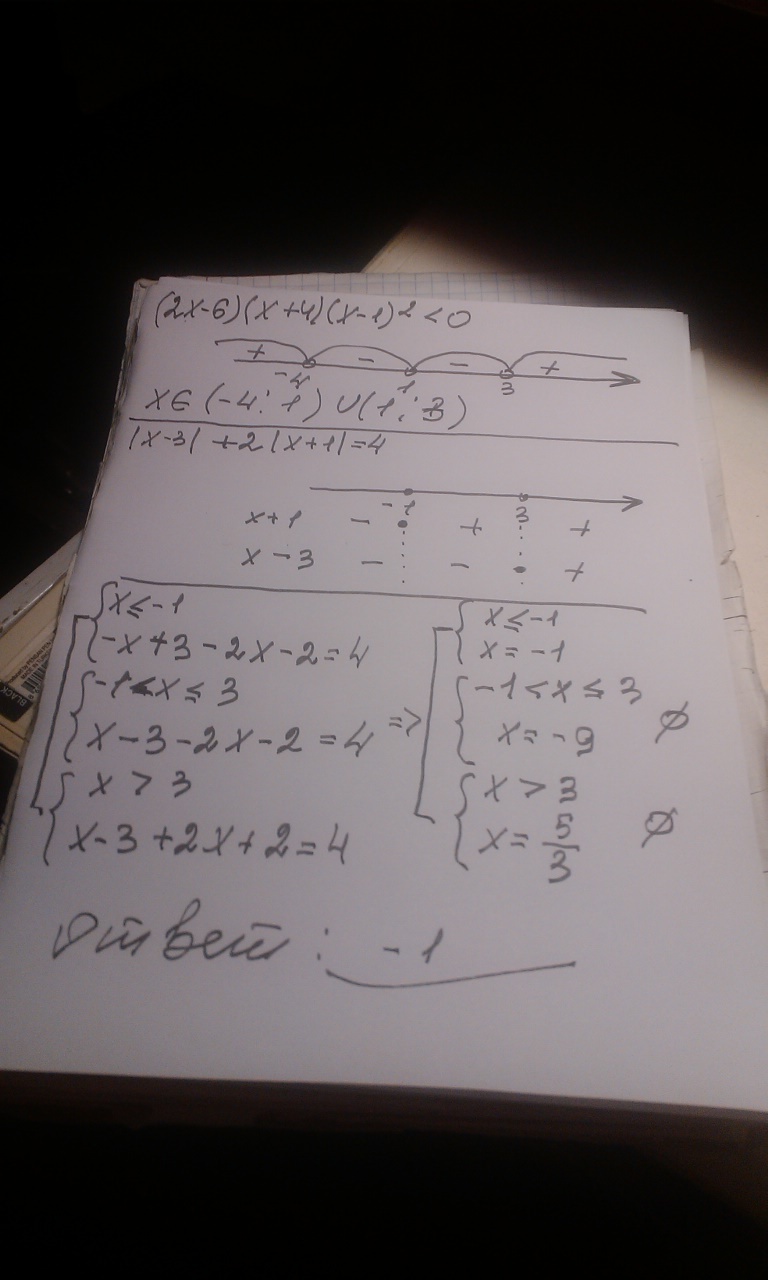 (2x-6)(x+4)(x-1)² < 0
+ - - +
-4 1 3
x∈(-4; 1) ∪ (1; 3)
|x-3| + 2|x+1| = 4
-1 3
x+1 - + +
x-3 - - +
x ≤ -1
-x+3-2x-2=4
-1 < x ≤ 3
x-3-2x-2=4
x > 3
x-3+2x+2=4
=>
x ≤ -1
x = -1
-1 < x ≤ 3
x = -9 ∅
x > 3
x = 5/3 ∅
Ответ: -1
BLACK